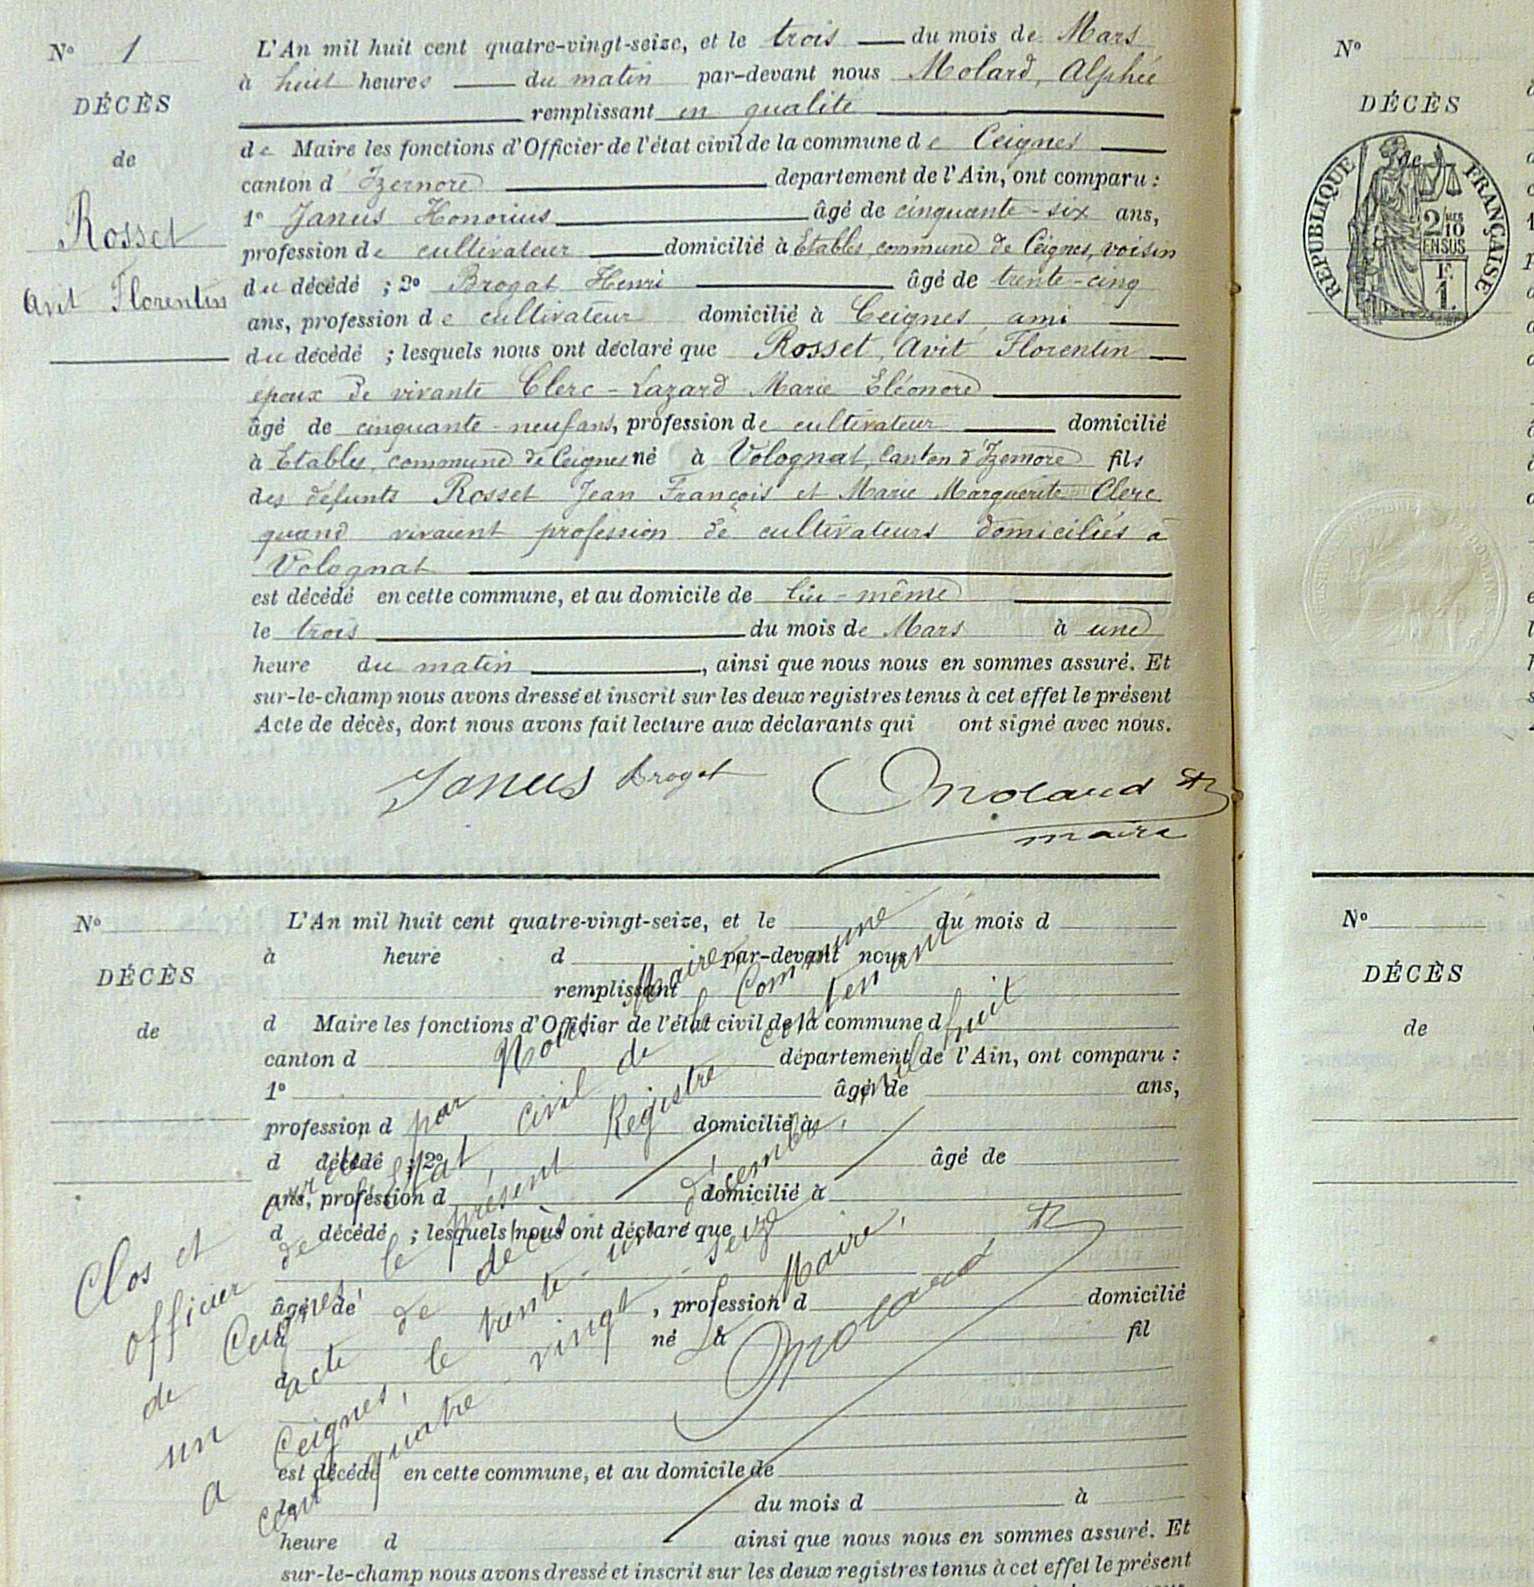 N° 1
DÉCÈS
de
Rosset
Avit Florentin
L'An mil huit cent quatre-vingt-seize, et le trois du mois de Mars
à huit heures du matin par-devant nous Molard, Alphée
remplissant en qualité
de Maire les fonctions d'Officier de l'état civil de la commune de Ceignes
canton d'Izernore département de l'Ain, ont comparu :
1° Janus Honorius âgé de cinquante-six ans,
profession de cultivateur domicilié à Etables, commune de Ceignes, voisin
du décédé ; 2° Brogat Henri âgé de trente-cinq
ans, profession de cultivateur domicilié à Ceignes, ami
du décédé ; lesquels nous ont déclaré que Rosset, Avit Florentin
époux de vivante Clerc-Lazard Marie Eléonore
âgé de cinquante-neuf ans, profession de cultivateur domicilié
à Etables, commune de Ceignes né à Volognat, canton d'Izernore fils
des défunts Rosset Jean François et Marie Marguerite Clerc
quand vivaient profession de cultivateurs domiciliés à
Volognat
est décédé en cette commune, et au domicile de lui-même
le trois du mois de Mars à une
heure du matin, ainsi que nous nous en sommes assuré. Et
sur-le-champ nous avons dressé et inscrit sur les deux registres tenus à cet effet le présent
Acte de décès, dont nous avons fait lecture aux déclarants qui ont signé avec nous.
Janus Brogat Molard
maire
N°
DÉCÈS
de
L'An mil huit cent quatre-vingt-seize, et le du mois d
à heure d par-devant nous
remplissant
d Maire les fonctions d'Officier de l'état civil de la commune d
canton d département de l'Ain, ont comparu :
1° âgé de ans,
profession d domicilié à
d décédé ; 2° âgé de
ans, profession d domicilié à
d décédé ; lesquels nous ont déclaré que
âgé de , profession d domicilié
à né à fil
d
est décédé en cette commune, et au domicile de
le du mois d à
heure d ainsi que nous nous en sommes assuré. Et
sur-le-champ nous avons dressé et inscrit sur les deux registres tenus à cet effet le présent
Clos et arrêté par Nous Maire,
officier de l'Etat civil de la Commune
de Ceignes le présent Registre contenant
un acte de décès
à Ceignes, le trente-un décembre, mil huit
cent quatre-vingt-seize
Le Maire,
Molard
N°
DÉCÈS
de
RÉPUBLIQUE FRANÇAISE
2/10
EN SUS
1 F.
N°
DÉCÈS
de